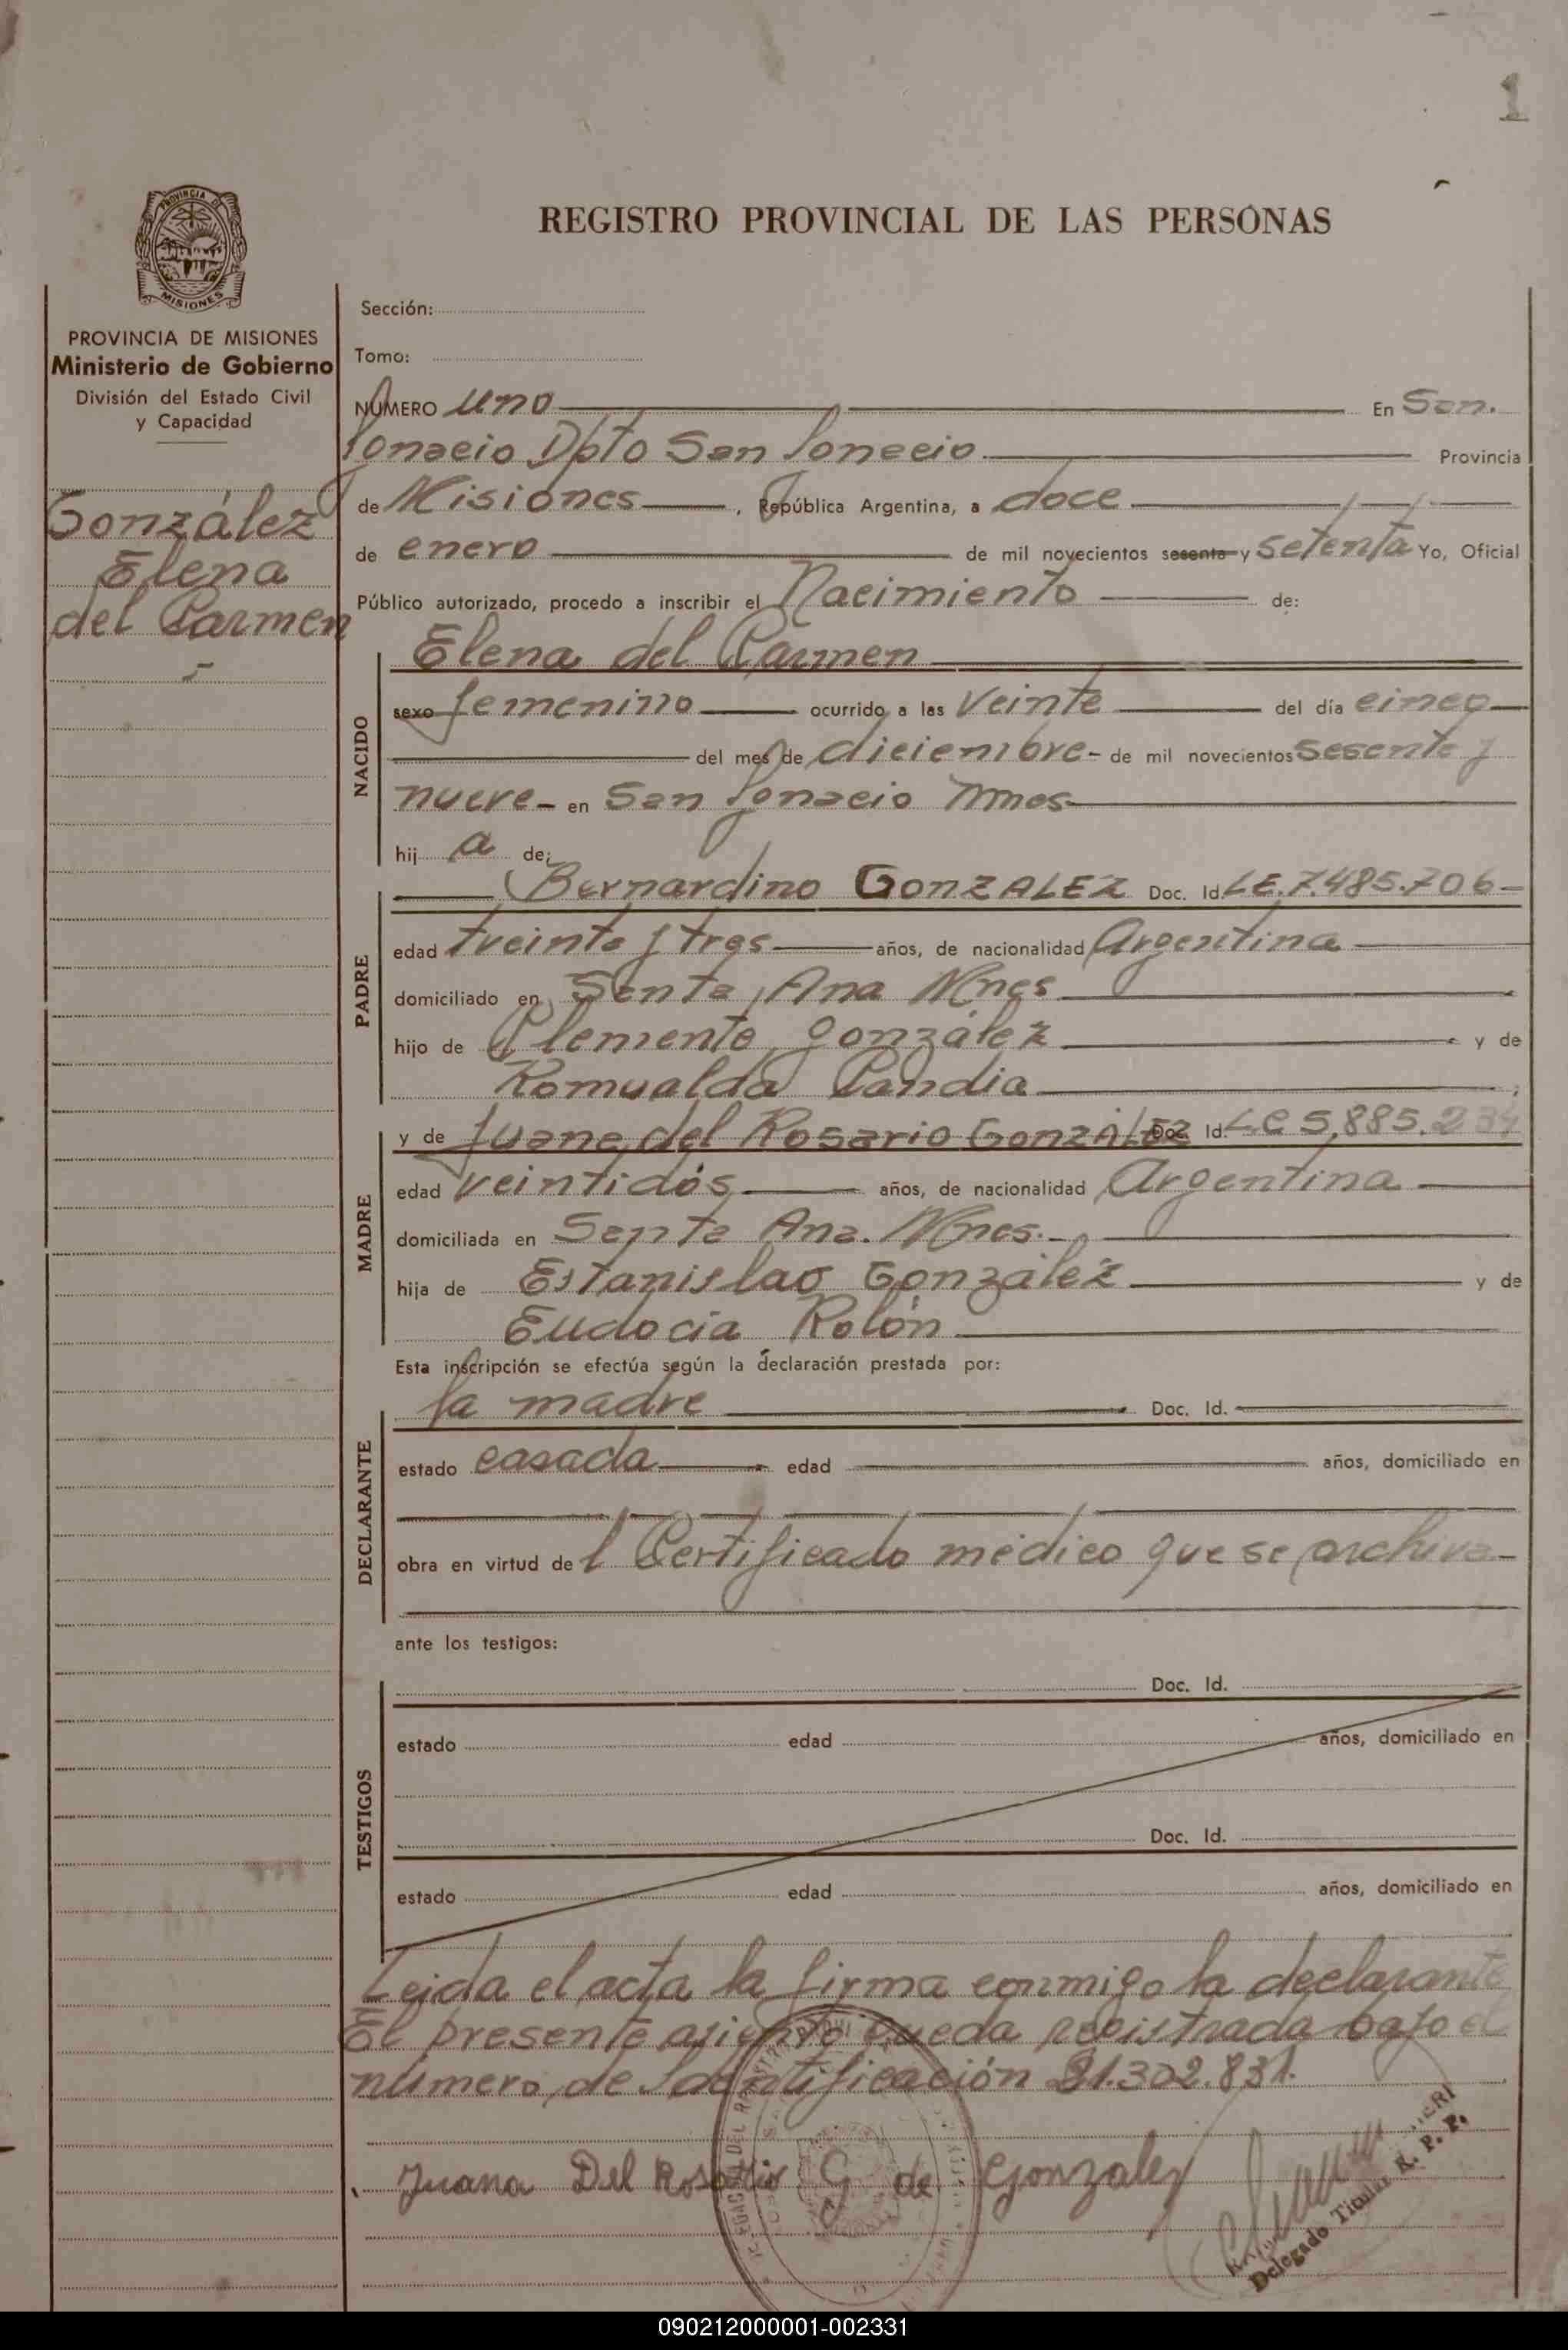 1
PROVINCIA DE
MISIONES
REGISTRO PROVINCIAL DE LAS PERSONAS
PROVINCIA DE MISIONES
Ministerio de Gobierno
División del Estado Civil
y Capacidad
González
Elena
del Carmen
Sección:
Tomo:
NUMERO uno En San.
Ignacio Dpto San Ignacio Provincia
de Misiones, República Argentina, a doce
de enero de mil novecientos sesenta y setenta Yo, Oficial
Público autorizado, procedo a inscribir el Nacimiento de:
NACIDO
Elena del Carmen
sexo femenino ocurrido a las veinte del día cinco
del mes de diciembre - de mil novecientos sesenta y
nueve - en San Ignacio Mnes
hij a de:
PADRE
Bernardino GONZALEZ Doc. Id. LE.7.485.706-
edad treinta y tres años, de nacionalidad Argentina
domiciliado en Santa Ana Mnes
hijo de Clemente González y de
Romualda Candia
MADRE
y de Juana del Rosario GONZALEZ Doc. Id. LC 5.885.234
edad veintidós años, de nacionalidad Argentina
domiciliada en Santa Ana. Mnes.-
hija de Estanislao González y de
Eudocia Rolón
Esta inscripción se efectúa según la declaración prestada por:
DECLARANTE
la madre Doc. Id.
estado casada edad años, domiciliado en
obra en virtud del Certificado médico que se archiva-
ante los testigos:
TESTIGOS
Doc. Id.
estado edad años, domiciliado en
Doc. Id.
estado edad años, domiciliado en
Leida el acta la firma conmigo la declarante
El presente asiento queda registrada bajo el
número de Identificación 21.302.831.
Juana Del Rosario G de Gonzalez
Delegado Titular R. P. P.
090212000001-002331